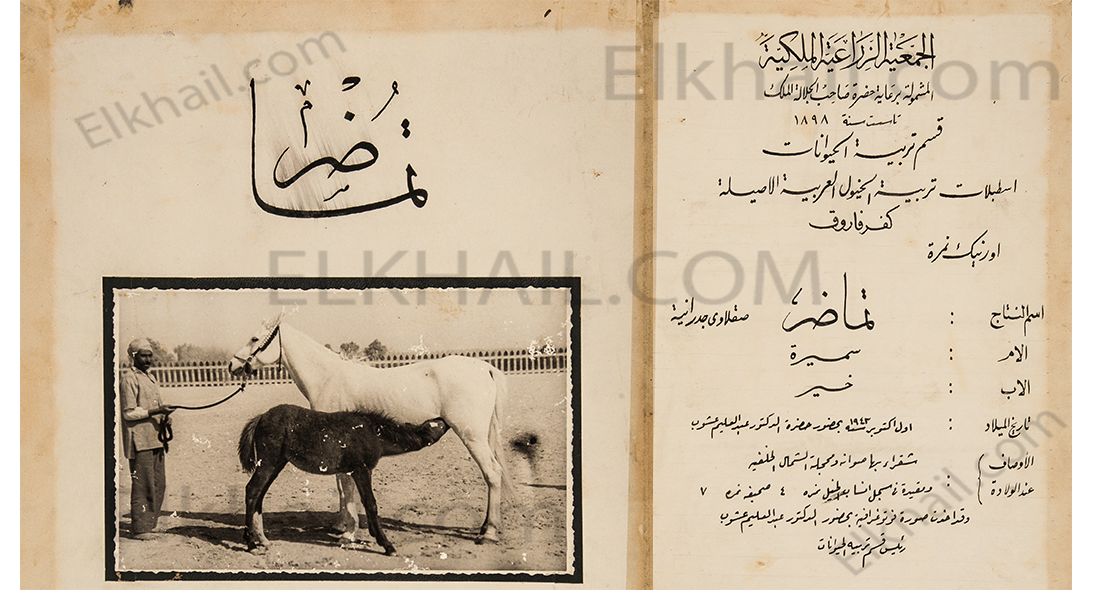 تماضر
الجمعية الزراعية الملكية
المشمولة برعاية حضرة صاحب الجلالة الملك
تأسست سنة ١٨٩٨
قسم تربية الحيوانات
اسطبلات تربية الخيول العربية الاصيلة
كفر فاروق
اورنيك نمرة
اسم النتاج : تماضر صقلاوى جدرانية
الام : سميرة
الاب : خير
تاريخ الميلاد : اول اكتوبر سنة ١٩٤٣ بحضور حضرة الدكتور عبد العليم عشوب
الأوصاف عند الولادة : شقراء بها صوانة ومحجلة الشمال الخلفية
ومقيدة فى سجل انساب الخيل نمره ٤ صحيفه نمره ٧
وقد اخذت صورة فوتوغرافية بحضور الدكتور عبد العليم عشوب
رئيس قسم تربية الحيوانات
Elkhail.com
Elkhail.com
ELKHAIL.COM
Elkhail.com